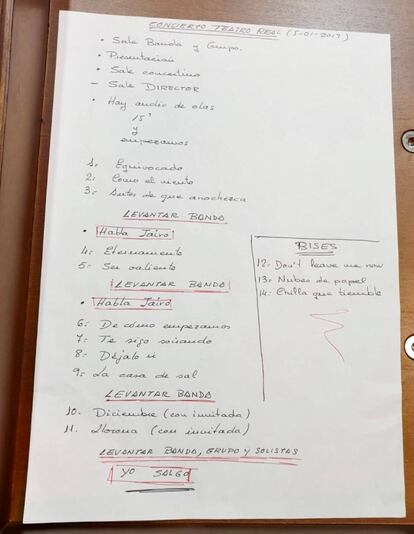 CONCIERTO TEATRO REAL (5-01-2019)
• Sale Banda y Grupo.
• Presentación
• Sale concertino
- Sale DIRECTOR
• Hay audio de olas
15'
y
empezamos
1.- Equivocado
2.- Como el viento
3.- Antes de que anochezca
LEVANTAR BANDA
• Habla Jairo
4.- Eternamente
5.- Ser valiente
LEVANTAR BANDA
• Habla Jairo
6.- De cómo empezamos
7.- Te sigo soñando
8.- Déjalo ir
9.- La casa de sal
LEVANTAR BANDA
10. Diciembre (con invitada)
11. Llorona (con invitada)
LEVANTAR BANDA, GRUPO Y SOLISTAS
YO SALGO
BISES
12.- Don't leave me now
13.- Nubes de papel
14.- Chilla que tiemble